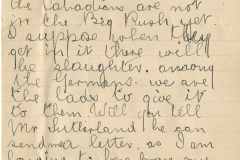 the Canadians are not
in the Big Push yet.
I suppose when they
get in it there will
be slaughter. among
the Germans. we are
the lads to give it
to them Will you tell
Mr Sutherland he can
send me letter. as I am
to have